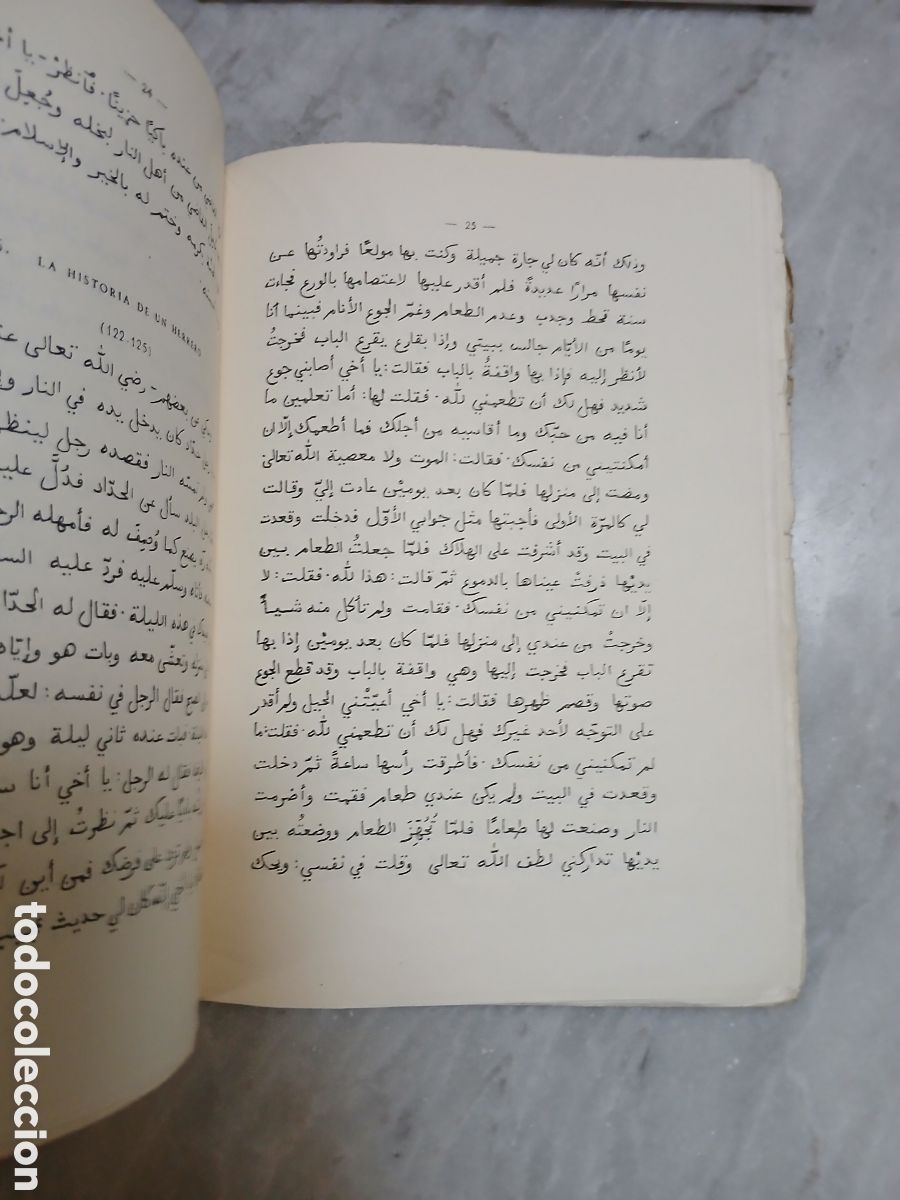 — 24 —
LA HISTORIA DE UN HERRERO
(122-125)
رضي الله تعالى
كان يدخل يده في النار
النار فقصده رجل لينظر
البلد سأل عن الحدّاد فدُلَّ
يصنع كما وُصِفَ له فأمهله
وسلّم عليه فردّ عليه
في هذه الليلة. فقال له
وتعشّى معه وبات هو وإيّاه
فقال الرجل في نفسه: لعلّه
فبات عنده ثاني ليلة وهو
فقال له الرجل: يا أخي أنا
ثمّ نظرتُ إلى
على فرضك فمن أين
كان لي حديث
— 25 —
وذلك أنّه كان لي جارة جميلة وكنت بها مولعًا فراودتُها عن
نفسها مرارًا عديدةً فلم أقدر عليها لاعتصامها بالورع فجاءت
سنة قحط وجدب وعدم الطعام وغمّ الجوع الأنام فبينما أنا
يومًا من الأيّام جالس ببيتي وإذا بقارع يقرع الباب فخرجتُ
لأنظر إليه فإذا بها واقفةُ بالباب فقالت: يا أخي أصابني جوع
شديد فهل لك أن تطعمني لله. فقلت لها: أما تعلمين ما
أنا فيه من حبّك وما أقاسيه من أجلك فما أطعمك إلّا ان
أمكنتيني من نفسك. فقالت: الموت ولا معصية الله تعالى
ومضت إلى منزلها فلمّا كان بعد يوميْن عادت إليّ وقالت
لي كالمرّة الأولى فأجبتها مثل جوابي الأوّل فدخلت وقعدت
في البيت وقد أشرفت على الهلاك فلمّا جعلتُ الطعام بين
يديْها ذرفتْ عيناها بالدموع ثمّ قالت: هذا لله. فقلت: لا
إلا ان تمكنيني من نفسك. فقامت ولم تأكل منه شيأً
وخرجتْ من عندي إلى منزلها فلمّا كان بعد يوميْن إذا بها
تقرع الباب فخرجت إليها وهي واقفة بالباب وقد قطع الجوع
صوتها وقصم ظهرها فقالت: يا أخي أعيّتْني الحيل ولم أقدر
على التوجّه لأحد غيرك فهل لك أن تطعمني لله. فقلت: ما
لم تمكنيني من نفسك. فأطرقت رأسها ساعةً ثمّ دخلت
وقعدت في البيت ولم يكن عندي طعام فقمت وأضرمت
النار وصنعت لها طعامًا فلمّا تُجُهِّزَ الطعام ووضعتُه بين
يديْها تداركني لطف الله تعالى وقلت في نفسي: ويحك
todocoleccion